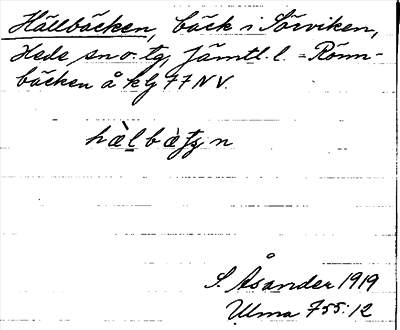 Hällbäcken, bäck i Sörviken,
Hede sn o. tg, Jämtl. l. = Rönn-
bäcken å kbl 77 NV.
hæ̀lbæ̀ʈʂn
S. Åsander 1919
Ulma 755:12